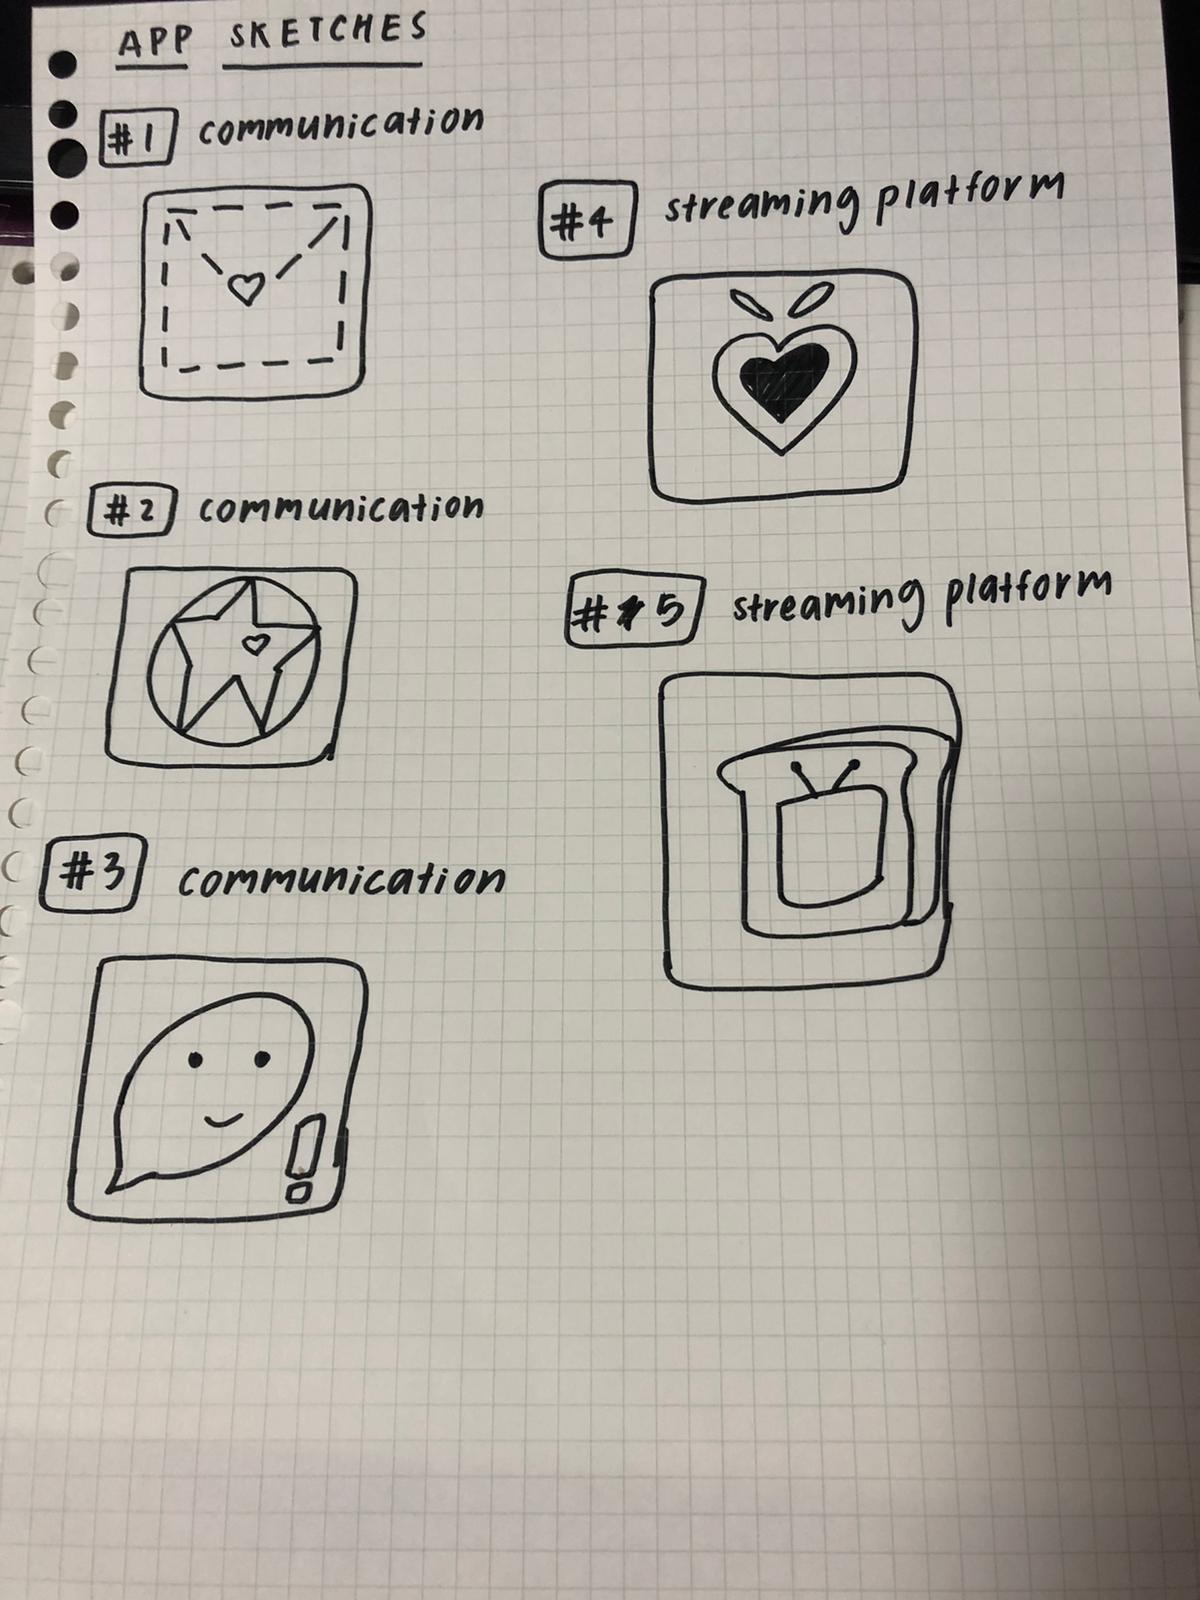 APP SKETCHES
#1 communication
#2 communication
#3 communication
!
#4 streaming platform
#5 streaming platform